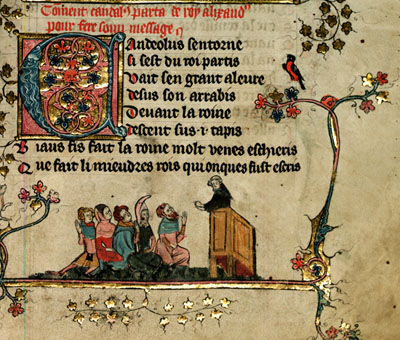 Coment candal⁹ parta de roy alixand'
pour fere soun message
Candeolus sentorne
si sest du roi partis
Vait sen grant aleure
desus son arrabis
Devant la roine
descent sus · i · tapis
Biaus fis fait la roine molt venes eschieris
Que fait li mieudres rois qui onques fust escris